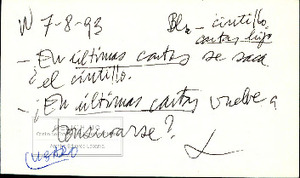 W 7-8-93 Bl2 – cintillo
cartas hijo
– En últimas cartas se saca
¿el cintillo.
– ¿En últimas cartas vuelve a
consurarse?